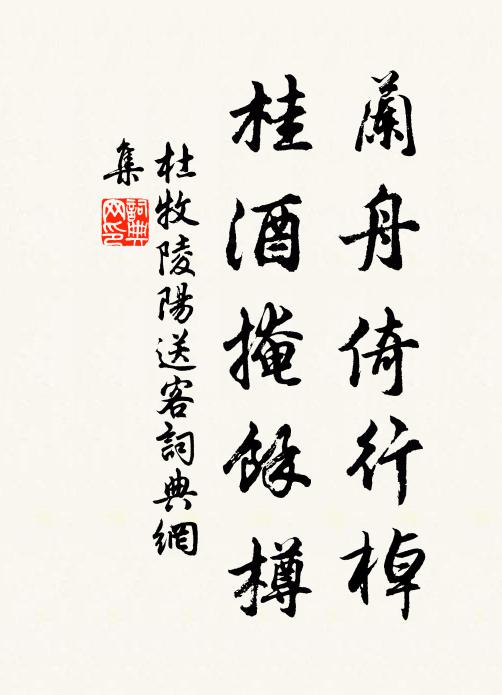 蘭舟倚行棹
桂酒掩餘樽
杜牧陵陽送客詞典網
集
詞典
网印